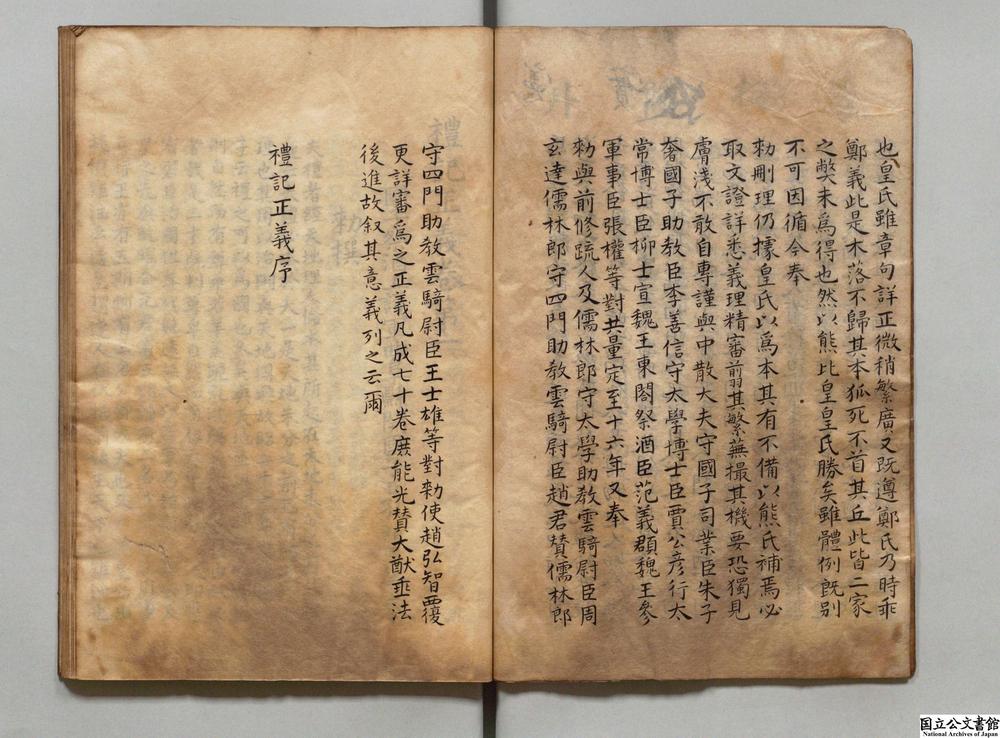 也皇氏雖章句詳正微稍繁廣又既遵鄭氏乃時乖
鄭義此是木落不歸其本狐死不首其丘此皆二家
之弊未為得也然以熊比皇皇氏勝矣雖體例既別
不可因循今奉
勑刪理仍據皇氏以為本其有不備以熊氏補焉必
取文證詳悉義理精審翦其繁蕪撮其機要恐獨見
膚淺不敢自專謹與中散大夫守國子司業臣朱子
奢國子助教臣李善信守太學博士臣賈公彦行太
常博士臣柳士宣魏王東閤祭酒臣范義頵魏王參
軍事臣張權等對共量定至十六年又奉
勑與前修疏人及儒林郎守太學助教雲騎尉臣周
玄達儒林郎守四門助教雲騎尉臣趙君贊儒林郎
守四門助教雲騎尉臣王士雄等對勑使趙弘智覆
更詳審為之正義凡成七十卷庶能光贊大猷垂法
後進故叙其意義列之云爾
禮記正義序
国立公文書館
National Archives of Japan